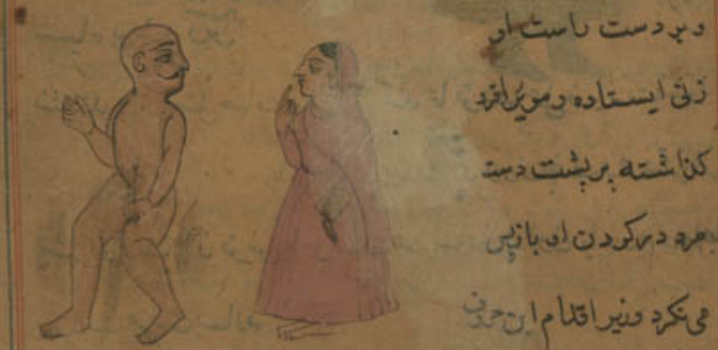 و بر دست راست او
زنی ایستاده و موی فرو
کذاشته بر پشت دست
مرد در کردن او باز پس
می نکرد و زیر اقدام این حروف